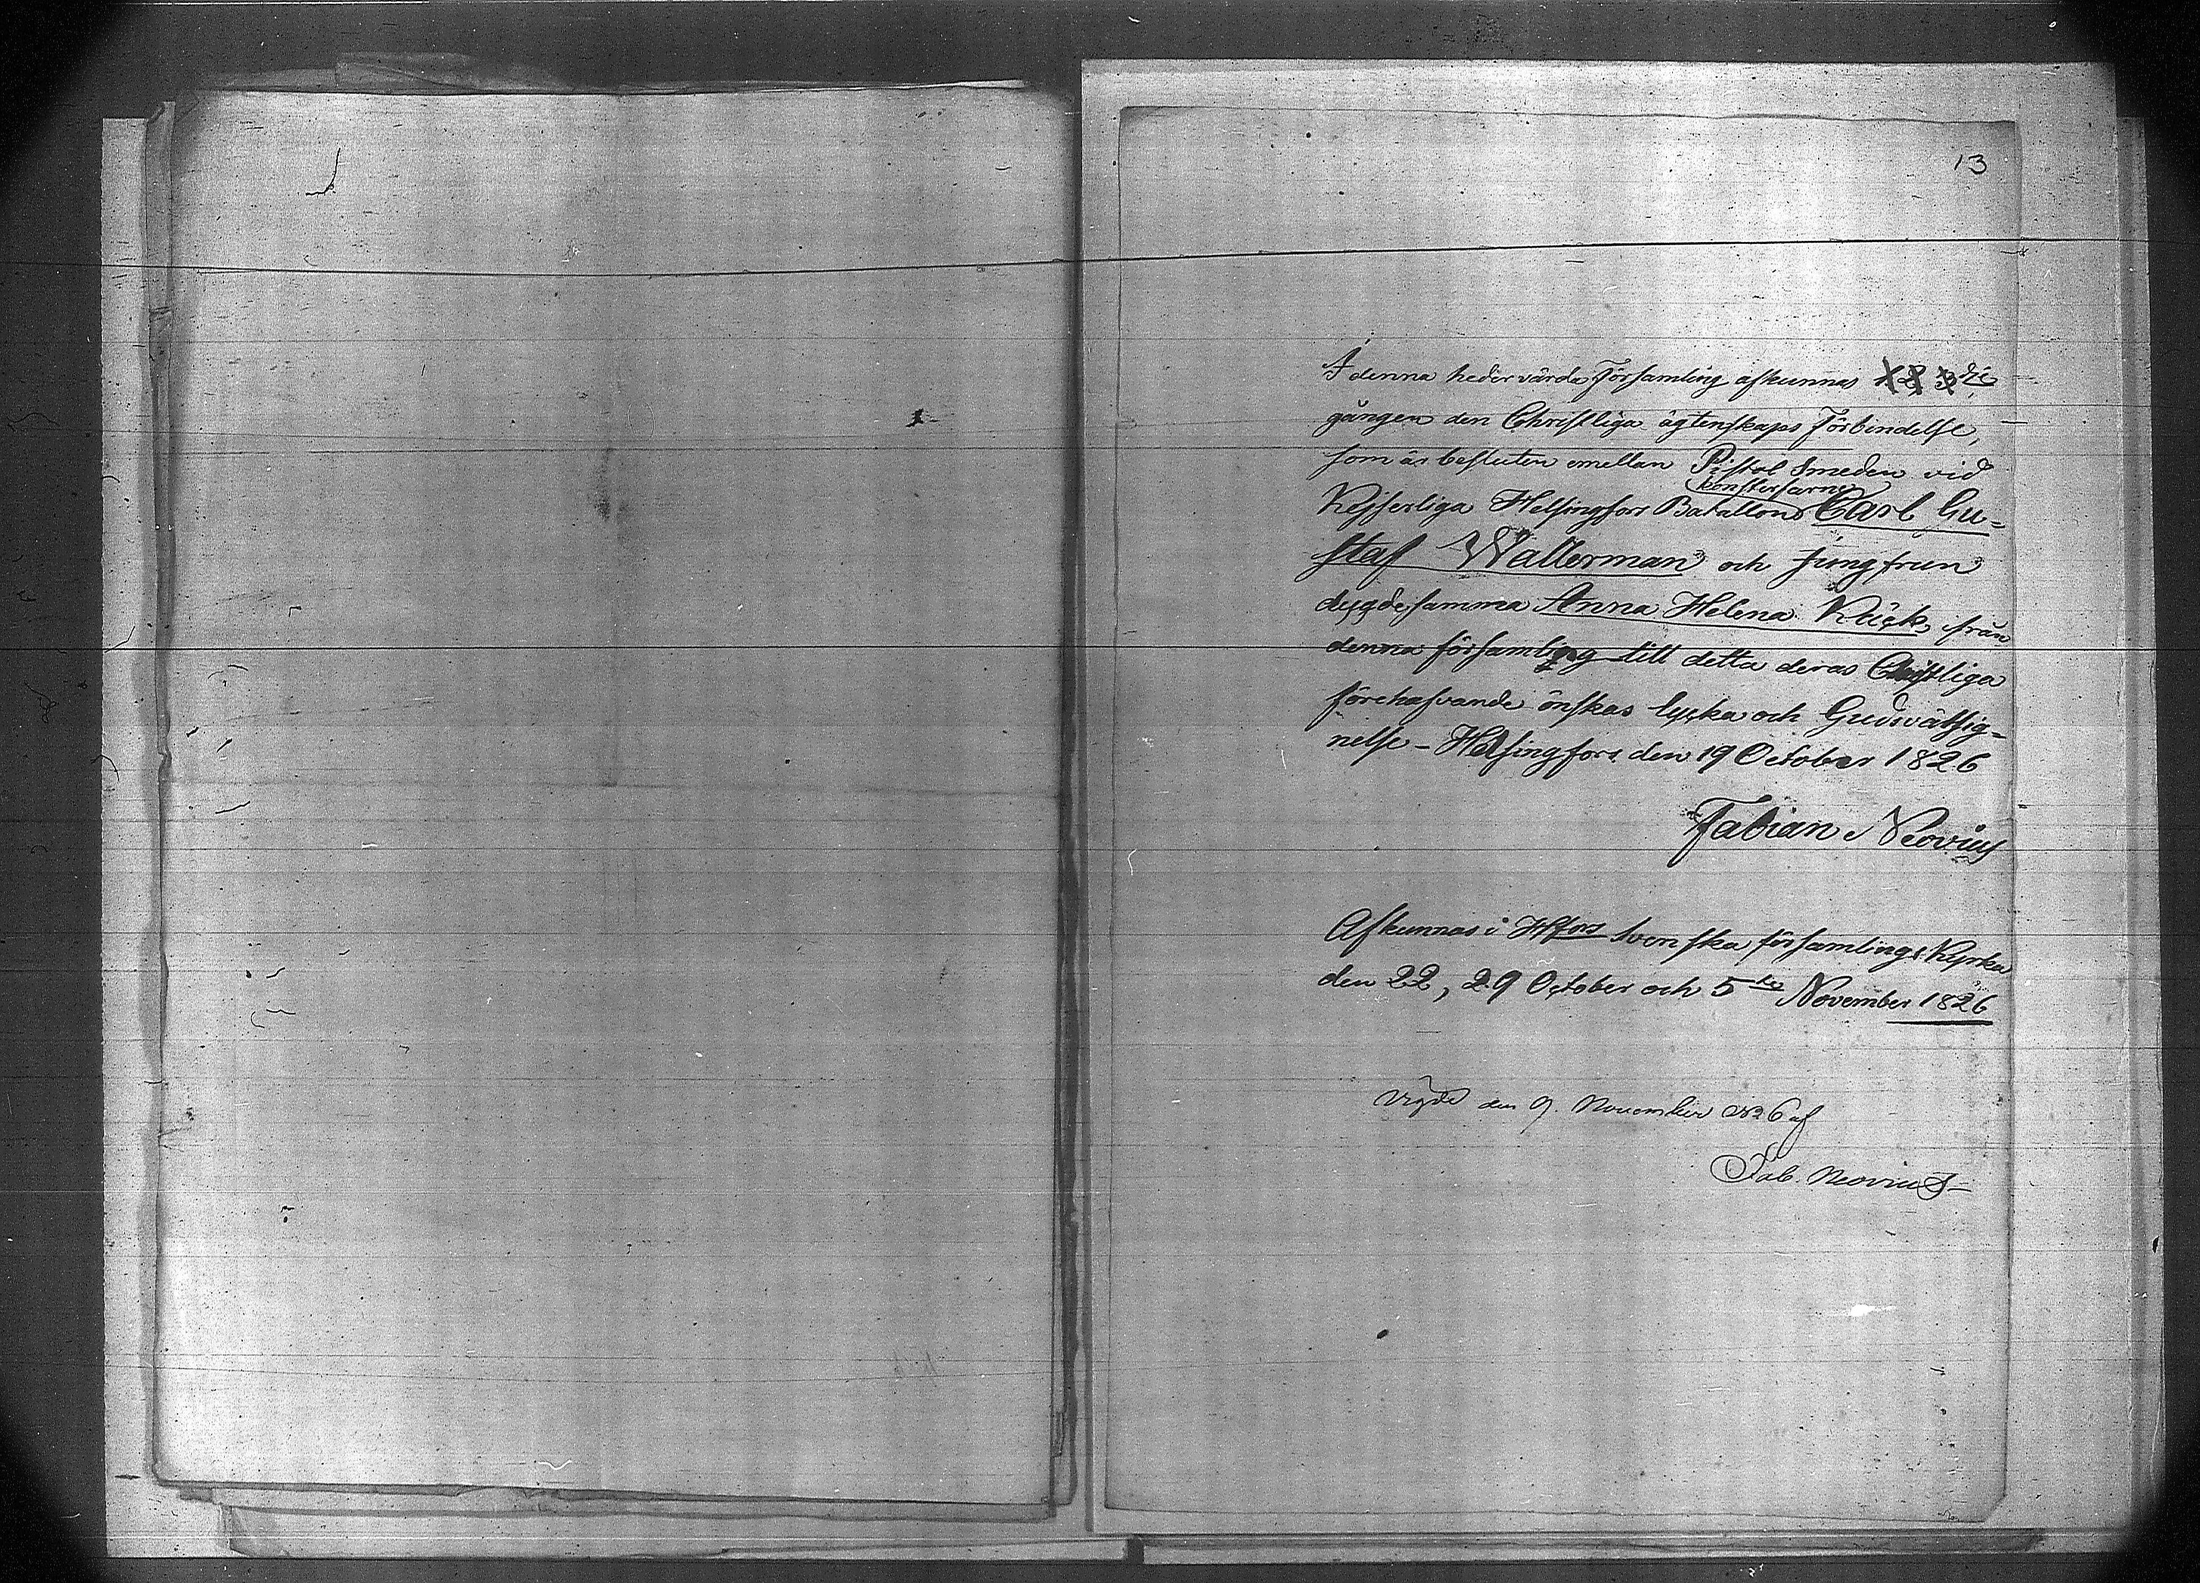 13
I denna hedervärda Församling afkunnas 1 2 3dje
gången den Christliga ägtenskaps Förbindelse,
som är besluten emellan Pistol Smeden vid
Kejserliga Helsingfors Batallons Carl Gu=
staf Wallerman och Jungfrun
dygdesamma Anna Helena Küçk, från
denna församling till detta deras Christliga
förehafvande önskas lycka och Guds välsig=
nelse - Helsingfors den 19 October 1826
Fabian Neovius
Afkunnas i Hfors Svenska församlings Kyrka
den 22, 29 October och 5te November 1826
Vigde den 9. November 1826 af
Fab. Neovius